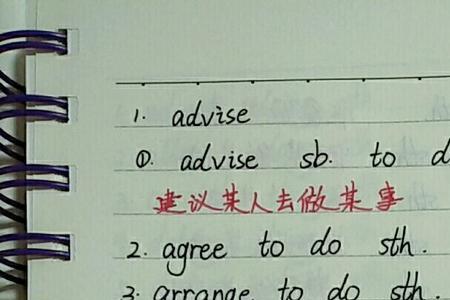 1. advise
①. advise sb. to d
建议某人去做某事
2. agree to do sth.
3. arrange to do sth.